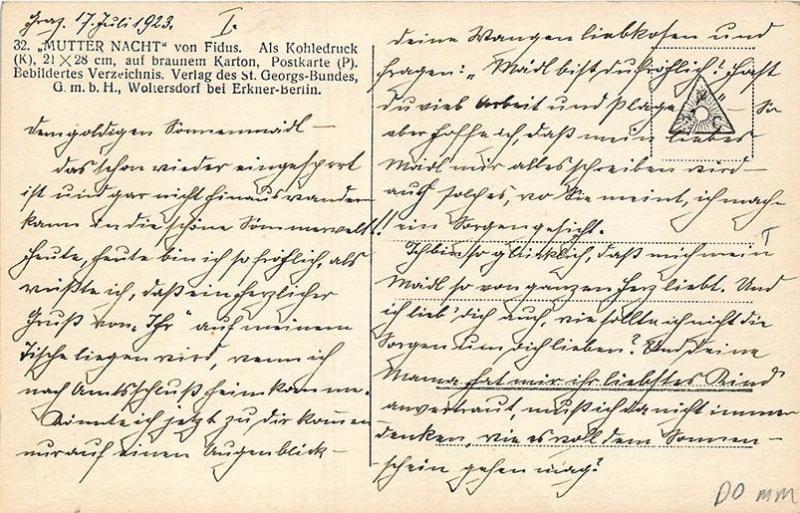 Graz, 17. Juli 1923. I.
32. „MUTTER NACHT“ von Fidus. Als Kohledruck
(K), 21×28 cm, auf braunem Karton, Postkarte (P).
Bebildertes Verzeichnis. Verlag des St. Georgs-Bundes,
G. m. b. H., Woltersdorf bei Erkner-Berlin.
Dem goldigen Sonnenmadl –
das schon wieder eingesperrt
ist und gar nicht hinauswandern
kann in die schöne Sommerwelt!
Heute, heute bin ich so fröhlich, als
wüßte ich, daß ein herzlicher
Gruß von „Ihr“ auf meinem
Tische liegen wird, wenn ich
nach Amtsschluß heimkomme.
Könnte ich jetzt zu dir kommen
nur auf einen Augenblick –
deine Wangen liebkosen und
fragen: „Madl bist du fröhlich? Hast
du viel Arbeit und Plage
aber hoffe ich, daß mein liebes
Madl mir alles schreiben wird –
auch solches, wo Sie meint, ich mach
ein Sorgengesicht.
Ich bin so glücklich, daß mich mein
Madl so von ganzen Herz liebt. Und
ich lieb' dich auch, wie sollte ich nicht die
Sorgen um dich lieben? Und deine
Mama hat mir ihr liebstes Kind
anvertraut, muß ich da nicht immer
denken, wie es voll dem Sonnen-
schein gehen mag?
DO mm